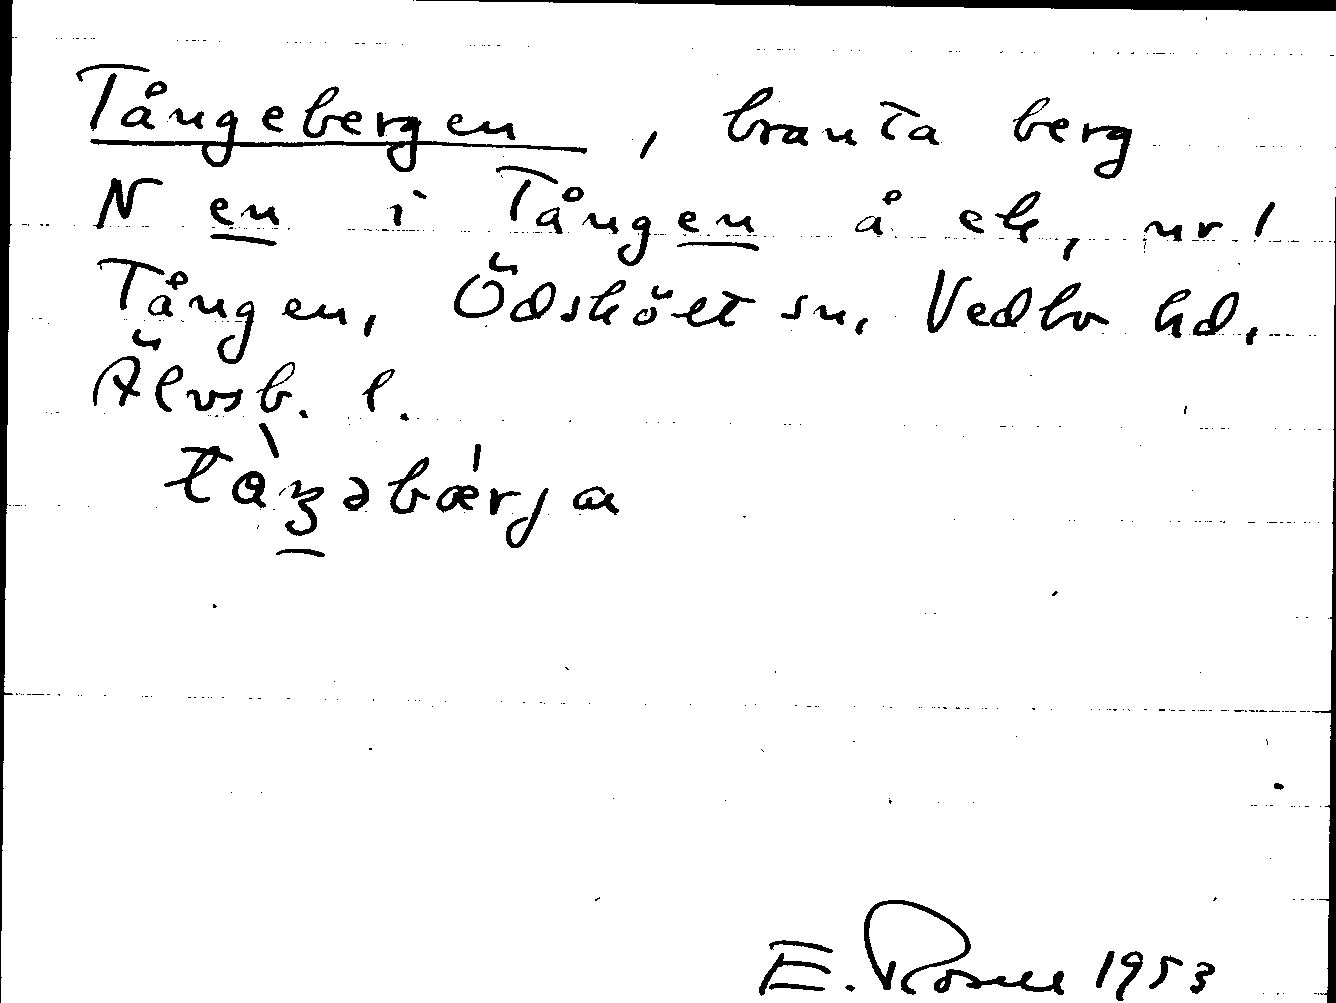 Tångebergen, branta berg
N en i Tången å ek, nr 1
Tången, Ödskölt sn, Vedbo hd,
Älvsb. l.
tàŋəbǽrja
E. Rosell 1953